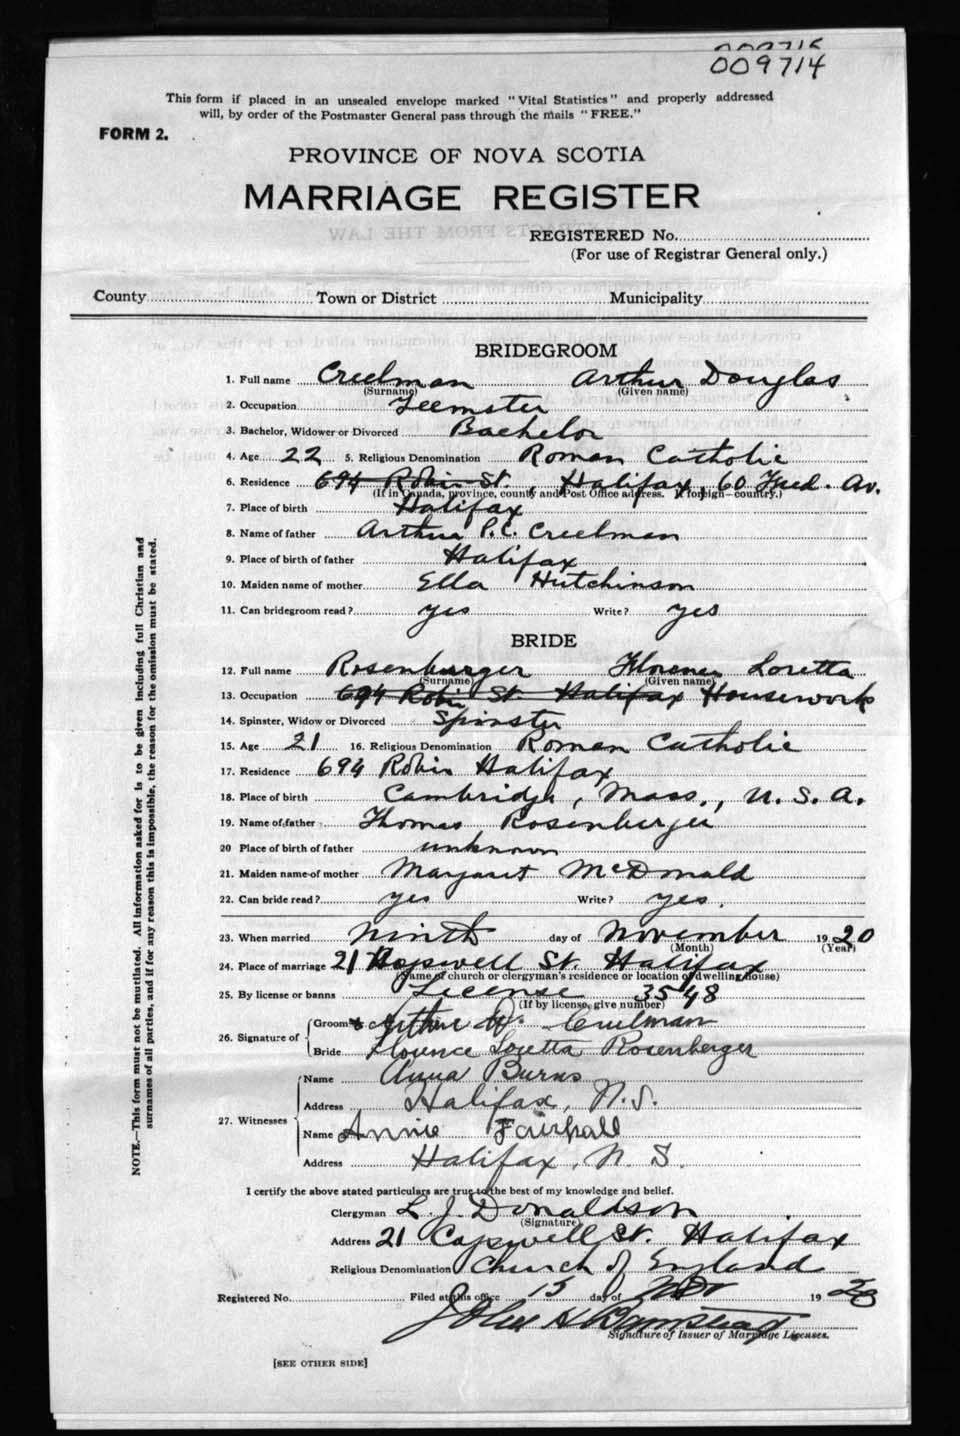 009715
009714
This form if placed in an unsealed envelope marked "Vital Statistics" and properly addressed
will, by order of the Postmaster General pass through the mails "FREE."
FORM 2.
PROVINCE OF NOVA SCOTIA
MARRIAGE REGISTER
REGISTERED No.
(For use of Registrar General only.)
County Town or District Municipality
BRIDEGROOM
1. Full name Creelman Arthur Douglas
(Surname) (Given name)
2. Occupation Teemster
3. Bachelor, Widower or Divorced Bachelor
4. Age 22 5. Religious Denomination Roman Catholic
6. Residence 694 Robie St., Halifax, 60 Fred. Av.
(If in Canada, province, county and Post Office address. If foreign—country.)
7. Place of birth Halifax
8. Name of father Arthur P.C. Creelman
9. Place of birth of father Halifax
10. Maiden name of mother Ella Hutchinson
11. Can bridegroom read? yes Write? yes
BRIDE
12. Full name Rosenburger Florence Loretta
(Surname) (Given name)
13. Occupation 694 Robie St Halifax Housework
14. Spinster, Widow or Divorced Spinster
15. Age 21 16. Religious Denomination Roman Catholic
17. Residence 694 Robie Halifax
18. Place of birth Cambridge, Mass., U. S. A.
19. Name of father Thomas Rosenburger
20 Place of birth of father unknown
21. Maiden name of mother Margaret McDonald
22. Can bride read? yes Write? yes.
23. When married Ninth day of November 1920
(Month) (Year)
24. Place of marriage 21 St. Halifax
(Name of church or clergyman's residence or location of dwelling house)
25. By license or banns License 3548
(If by license, give number)
26. Signature of Groom Arthur D. Creelman
Bride Florence Loretta Rosenberger
27. Witnesses Name Anna Burns
Address Halifax, N.S.
Name Annie Fairhall
Address Halifax, N. S.
I certify the above stated particulars are true to the best of my knowledge and belief.
Clergyman L. J. Donaldson
(Signature)
Address 21 Copswell St. Halifax
Religious Denomination Church of England
Registered No. Filed at this office 15 day of Nov 19
John
Signature of Issuer of Marriage Licenses.
[SEE OTHER SIDE]
NOTE.—This form must not be mutilated. All information asked for is to be given including full Christian and
surnames of all parties, and if for any reason this is impossible, the reason for the omission must be stated.